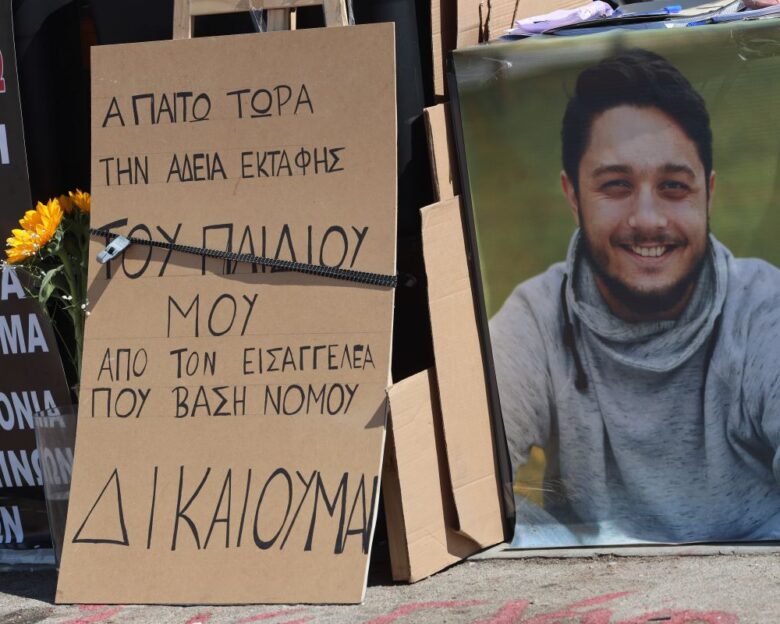 Α ΠΑΙΤΩ ΤΩΡΑ
ΤΗΝ ΑΔΕΙΑ ΕΚΤΑΦΗΣ
ΤΟΥ ΠΑΙΔΙΟΥ
ΜΟΥ
ΑΠΟ ΤΟΝ ΕΙΣΑΓΓΕΛΕΑ
ΠΟΥ ΒΑΣΗ ΝΟΜΟΥ
ΔΙΚΑΙΟΥΜΑΙ